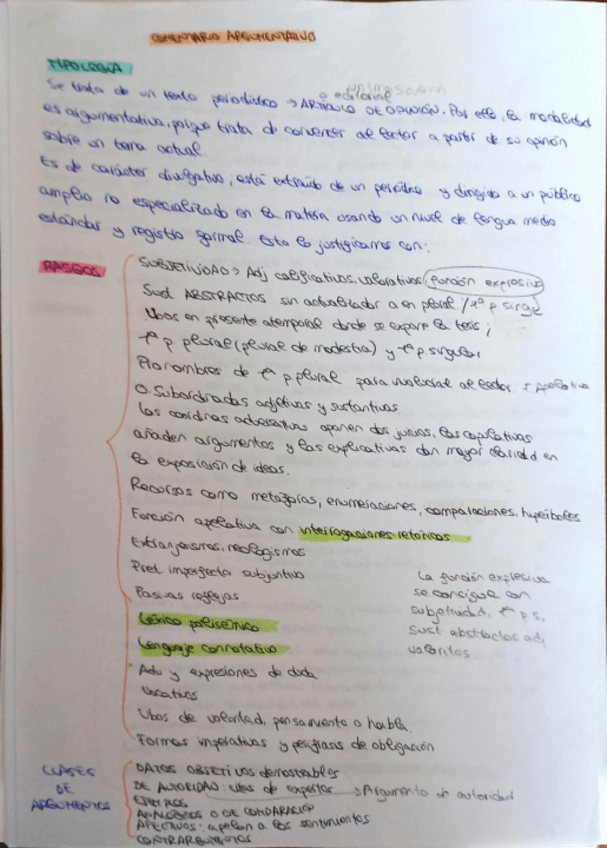 COMENTARIO ARGUMENTATIVO
TIPOLOGIA
o editorial
Se trata de un texto periodístico → ARTÍCULO DE OPINIÓN. Por ello, la modalidad
es argumentativa, porque trata de convencer al lector a partir de su opinión
sobre un tema actual.
Es de carácter divulgativo, está extraído de un periódico y dirigido a un público
amplio no especializado en la materia usando un nivel de lengua medio
estándar y registro formal. Esto lo justificamos con:
RASGOS
SUBJETIVIDAD → Adj calificativos, valorativos (función expresiva
Sust ABSTRACTOS sin actualizador o en plural / 1ª p singº
Vbos en presente atemporal donde se expone la tesis;
1ª p plural (plural de modestia) y 1ª p. singular
Pronombres de 1ª p plural para involucrar al lector F apelativa
O. Subordinadas adjetivas y sustantivas.
Las coordinas adversativas oponen dos juicios, las copulativas
añaden argumentos y las explicativas dan mayor claridad en
la exposición de ideas.
Recursos como metáforas, enumeraciones, comparaciones, hipérboles
Función apelativa con interrogaciones retóricas
Extranjerismos, neologismos
Pret imperfecto subjuntivo
Pasivas reflejas
Léxico polisémico
Lenguaje connotativo
Adv y expresiones de duda
Vocativos
Vbos de voluntad, pensamiento o habla.
Formas imperativas y perífrasis de obligación
La función expresiva
se consigue con
subjetividad, 1ª p s,
Sust abstractos adj
valoritos
CLASES
DE
ARGUMENTOS
DATOS OBJETIVOS demostrables
DE AUTORIDAD: citas de expertos → Argumento de autoridad
EJEMPLOS
ANALÓGICOS O DE COMPARACIÓN
AFECTIVOS: apelan a los sentimientos
CONTRARGUMENTOS